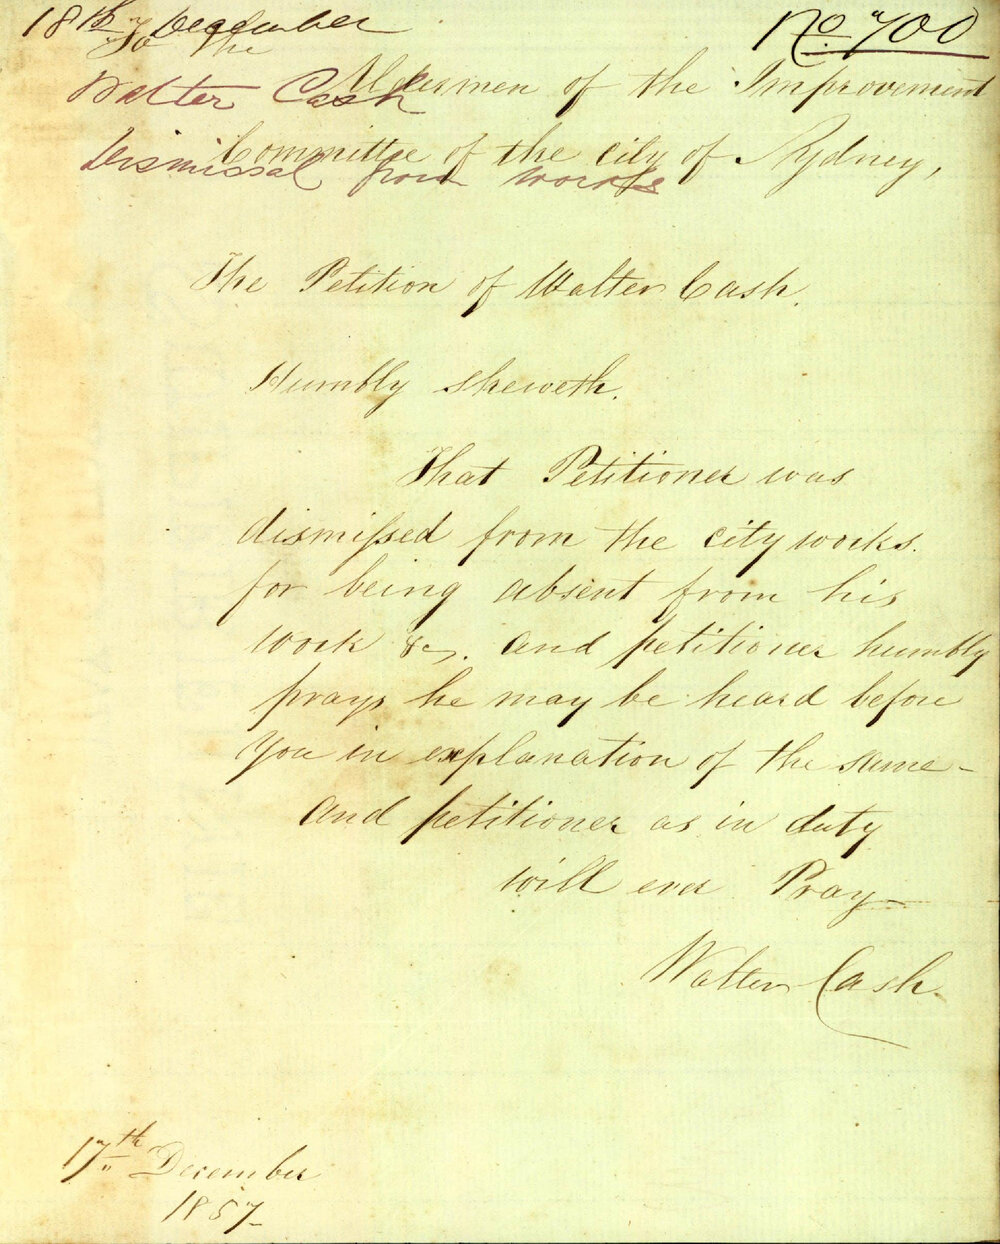 18th December
No 700
To The
Walter Cash
Aldermen of the Improvement
Committee of the city of Sydney,
Dismissal from works
The Petition of Walter Cash.
Humbly Sheweth.
That Petitioner was
dismissed from the city works.
for being absent from his
work &c. and petitioner humbly
prays he may be heard before
you in explanation of the same -
and petitioner as in duty
will ever Pray
Walter Cash
17th December
1857